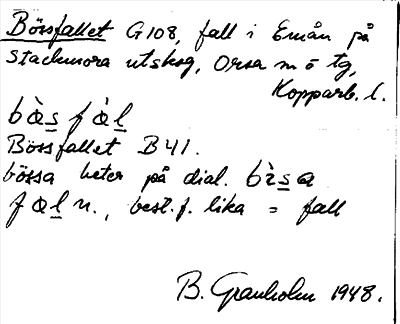 Börsfallet G108, fall i Emån på
Stackmora utskog, Orsa m o tg,
Kopparb. l.
bὰs fὰl
Börsfallet B41.
bössa heter på dial. bɩ̀sa
fal n., best. f. lika = fall
B. Granholm 1948.